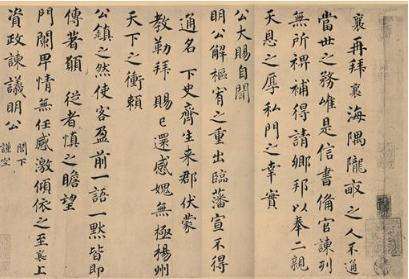 襄再拜襄海隅隴畝之人不通
當世之務唯是信書備官諫列
無所裨補得請鄉邦以奉二親
天恩之厚私門之幸實
公大賜自聞
明公解樞宥之重出臨藩宣不得
通名 下史齊生來郡伏蒙
教勒拜 賜已還感愧無極楊州
天下之衝賴
公鎮之然使客盈前一語一默皆即
傳著願 從者慎之瞻望
門闌卑情無任感激傾依之至襄上
資政諫議明公 閤下
謹空